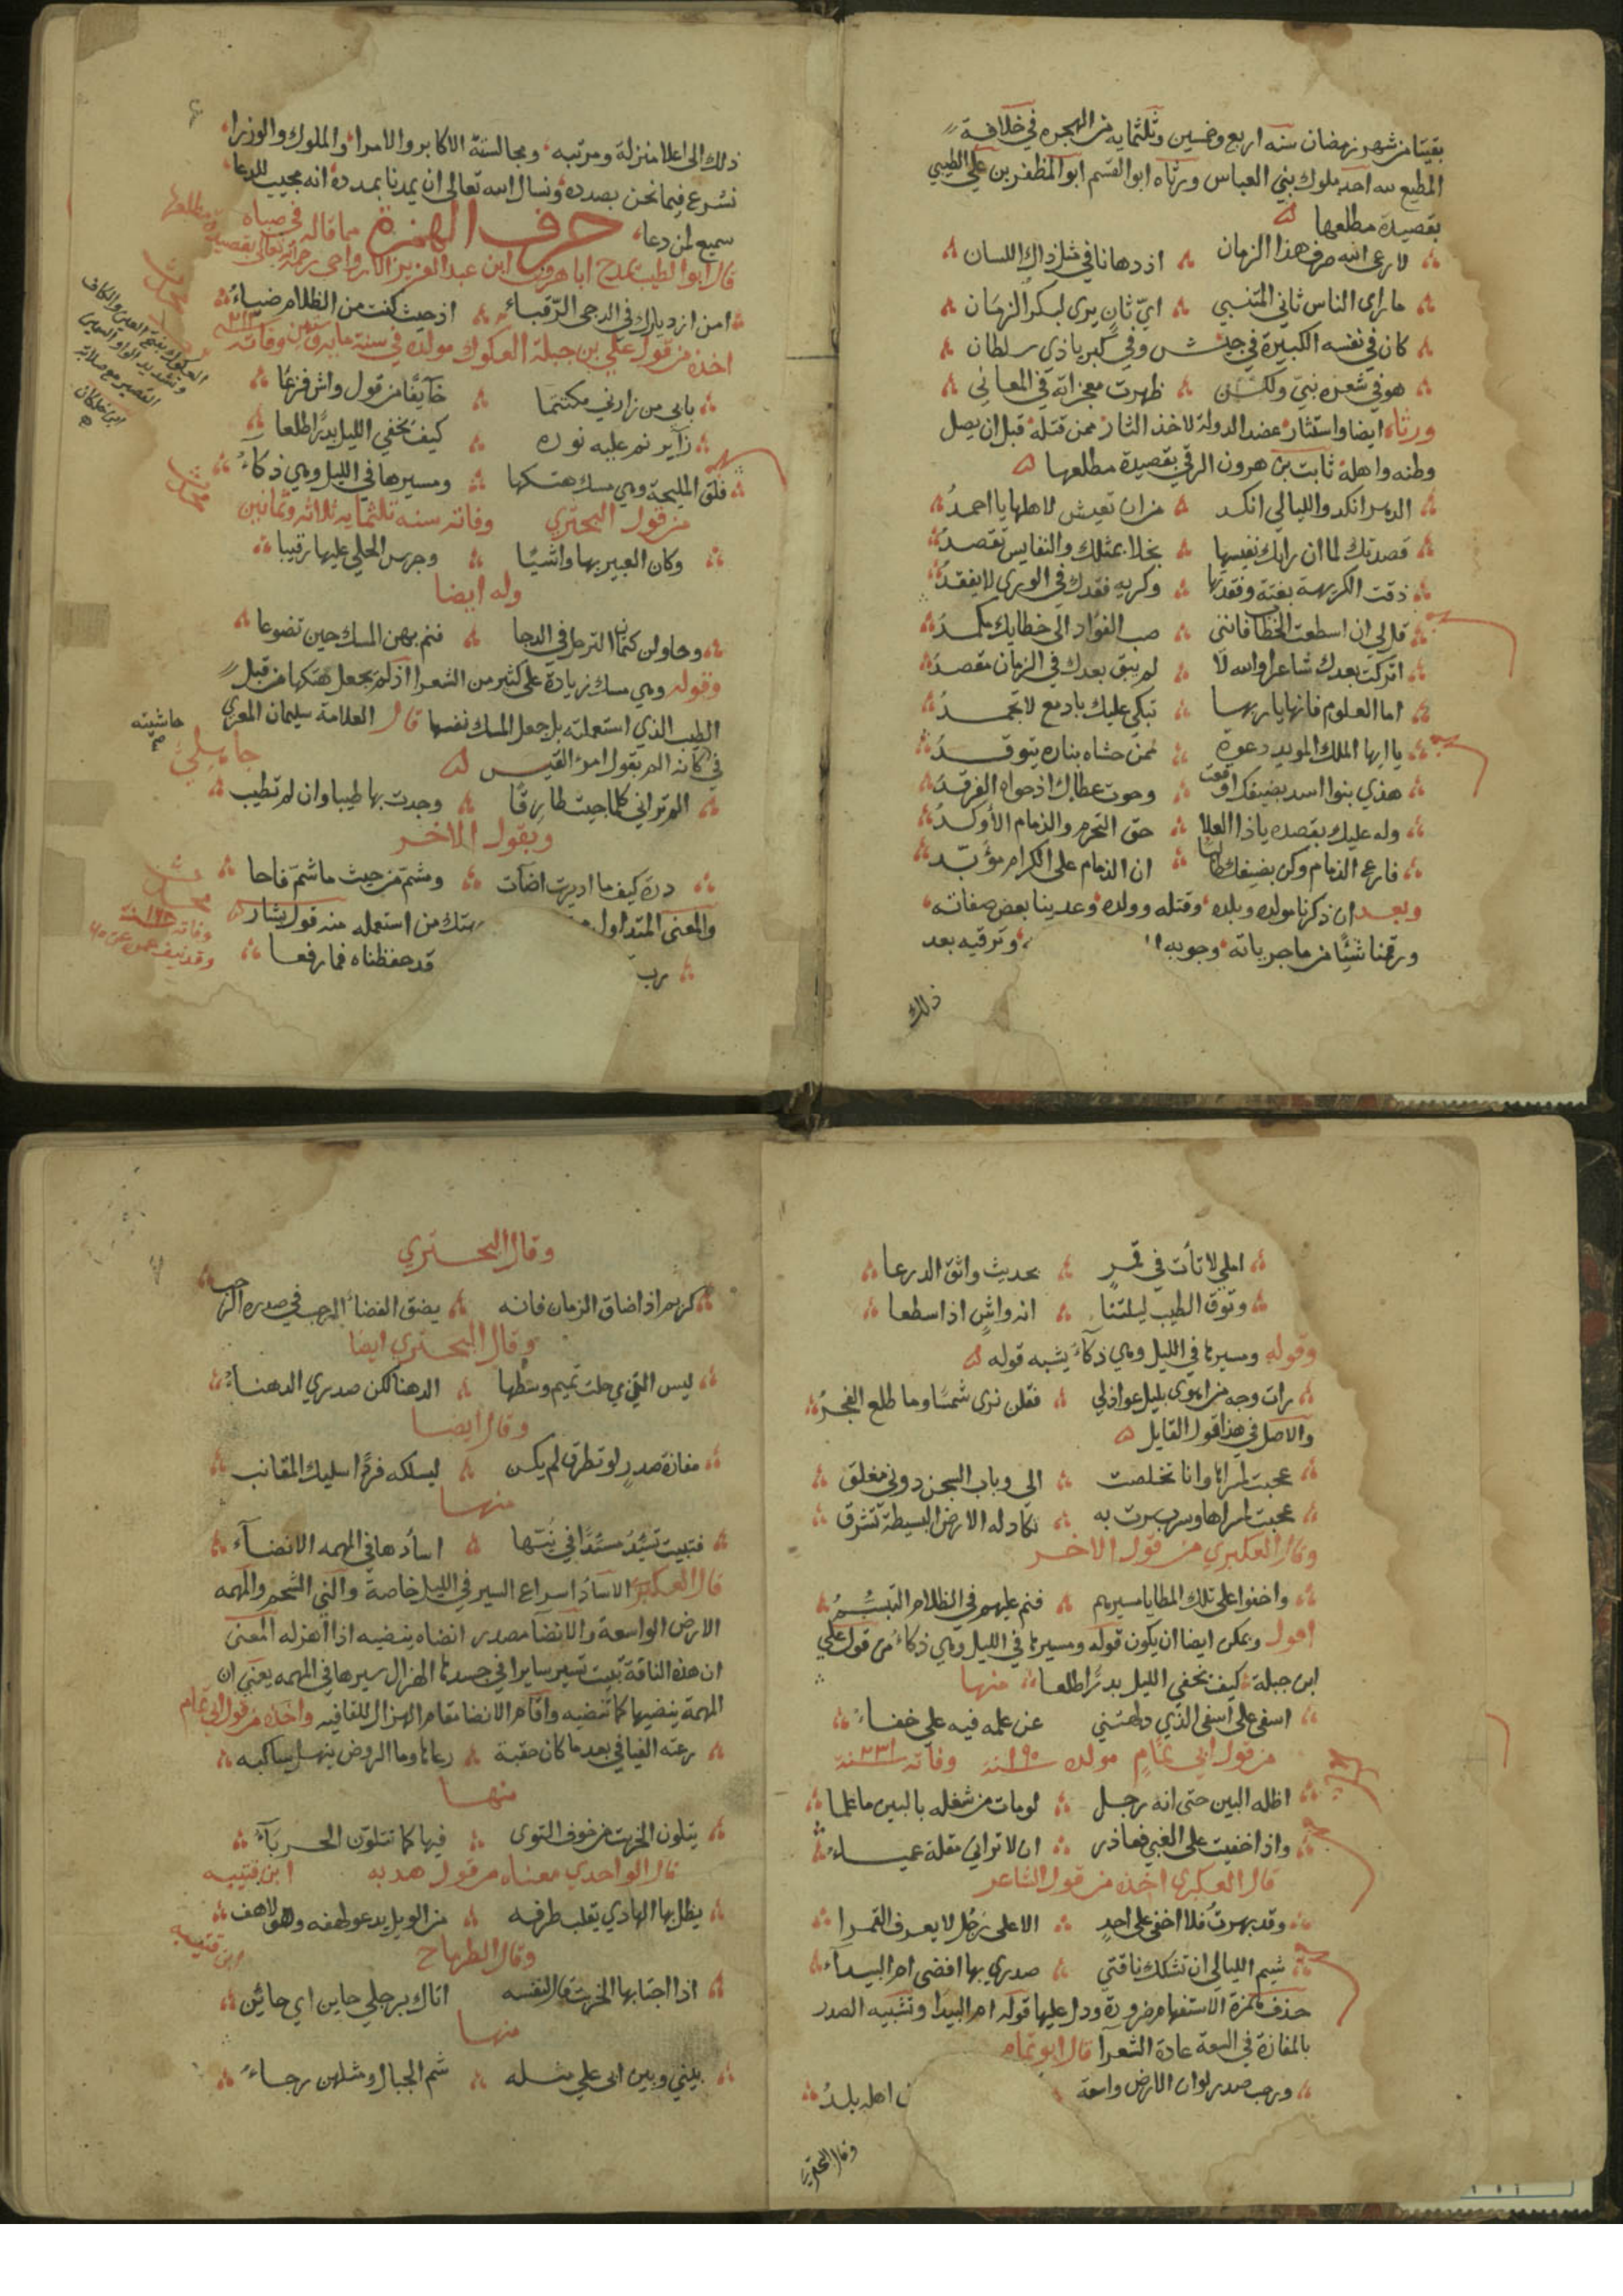 بقيتا من شهر رمضان سنه اربع وخمسين وثلثمايه من الهجره في خلافة
المطيع لله احد ملوك بني العباس ورثاه ابو القسم ابو المظفر بن علي الطبسي
بقصيدة مطلعها
لا رعى الله صرف هذا الزمان اذ دهانا في مثل ذاك اللسان
ما راى الناس ثاني المتنبي ايّ ثانٍ يرى لبكر الزمان
كان في نفسه الكبيرة في جيش وفي كبرياء ذي سلطان
هو في شعره نبيّ ولكن ظهرت معجزاته في المعاني
ورثاه ايضا واستثار عضد الدولة لاخذ الثار ممن قتله قبل ان يصل
وطنه واهله ثابت بن هرون الرقي بقصيدة مطلعها
الدهر انكد والليالي انكد من ان تعيش لاهلها يا احمدُ
قصدتك لما ان راتك نفيسها بخلا بمثلك والنفايس تقصدُ
ذقت الكريهة بغتة وفقدتها وكريه فقدك في الورى لا يفقدُ
قل لي ان اسطعت الخطاب فانني صب الفؤاد الى خطابك مكمدُ
اتركت بعدك شاعرا والله لا لم يبق بعدك في الزمان مقصدُ
اما العلوم فانها يا ربها تبكي عليك بادمع لا تجمدُ
يا ايها الملك المويد دعوة ممن حشاه بناره يتوقدُ
هذي بنوا اسد بضيفك اوقعت وحوت عطاك اذ حواه الفرقدُ
وله عليك بقصده يا ذا العلا حق التحرم والذمام الأوكدُ
فارع الذمام وكن بضيفك طالبا ان الذمام على الكرام مؤبّد
وبعد ان ذكرنا مولده وبلده وقتله وولده وعدينا بعض صفاته
ورقمنا شيئا من ماجرياته وجوبه وترقيه بعد
ذلك
ذلك الى اعلا منزلة ومرتبه ومجالسة الاكابر والامرا والملوك والوزرا
نشرع فيما نحن بصدده ونسال الله تعالى ان يمدنا بمدده انه مجيب الدعا
سميع لمن دعا حرف الهمزة مما قاله في صباه
قال ابو الطيب يمدح ابا هرون ابن عبد العزيز الاوراجي رحمه الله تعالى بقصيدة مطلعها
امن ازديارك في الدجى الرّقباء اذ حيث كنت من الظلام ضياءُ
اخذه من قول علي بن جبلة العكوك مولده في سنة وفاته
بابي من زارني مكتتما خآيفًا من قول واش فزعا
زآير نم عليه نوره كيف تخفي الليل بدرًا طلعا
قلق المليحة وهي مسك هتكها ومسيرها في الليل وهي ذكاءُ
من قول البحتري وفاته سنه ثلثمايه ثلاثه وثمانين
وكان العبير بها واشيًا وجرس الحلي عليها رقيبا
وله ايضا
وحاولن كتمان الترحل في الدجا فنم بهن المسك حين تضوعا
وقوله وهي مسك زيادة على كثير من الشعرا اذ لم يجعل هتكها من قبل
الطيب الذي استعملته بل جعل المسك نفسها قال العلامة سليمان المعري
في كانه الم يقول امرؤ القيس
الم ترياني كلما جيت طارقًا وجدت بها طيبا وان لم تطيب
ويقول الاخر
درة كيف ما اديرت اضآت ومشم من حيث ما شم فاحا
والمعنى المتداول هتك من استعمله منه قول بشار
رب قد حفظناه فما رفعا
العكوك بفتح العين والكاف
وتشديد الواو السمين
القصير مع صلابة
ابن خلكان
حاشيته
املي لا تأت في قمرٍ بحديث واتق الدرعا
وتوق الطيب ليلتنا انه واشٍ اذا سطعا
وقوله ومسيرها في الليل وهي ذكآء يشبه قوله
رات وجه من اهوى بليل عواذلي فقلن نرى شمسًا وما طلع الفجرُ
والاصل في هذا قول القايل
عجبت لمسراها وانا تخلصت الي وباب السجن دوني مغلق
عجبت لمسراها وسرب سرت به تكاد له الارض البسيطة تشرق
وقال العكبري من قول الاخر
واخفوا على تلك المطايا مسيرهم فنم عليهم في الظلام التبسُّمُ
اقول ويمكن ايضا ان يكون قوله ومسيرها في الليل وهي ذكاءُ من قول علي
ابن جبلة كيف تخفي الليل بدرًا طلعا منها
اسفي على اسفي الذي دلهتني عن علمه فيه علي خفاءُ
من قول ابي تمّامٍ مولده ١٩٠ سنة وفاته ٢٣١ سنة
اظله البين حتى انه رجل لو مات من شغله بالبين ما علما
واذا خفيت على الغبي فعاذر ان لا تراني مقلة عمياءُ
قال العكبري اخذه من قول الشاعر
وقد بهرتُ فلا اخفى على احدٍ الا على رجل لا يعرف القمرا
شيم الليالي ان تشكك ناقتي صدري بها افضى ام البيدآء
حذف همزة الاستفهام ضرورة ودل عليها قوله ام البيدا وتشبيه الصدر
بالمفازة في السعة عادة الشعرآ قال ابو تمام
ورحب صدر لو ان الارض واسعة اهله بلدُ
وقال البحتري
وقال البحتري
كريم اذا ضاق الزمان فانه يضيق الفضاء الرحب في صدره الرحب
وقال البحتري ايضا
ليس التي حلت تميم وسطها الدهنا لكن صدري الدهناءُ
وقال ايضا
مفازة صدرٍ لو تطرق لم يكن ليسلكه فردًا سليك المقانب
منها
فتبيت تسئد مسئدًا في نيّها اسآدها في المهمه الانضآء
قال العكبري الاسآد اسراع السير في الليل خاصة والني الشحم والمهمه
الارض الواسعة والانضا مصدر انضاه ينضيه اذا اهزله المعنى
ان هذه الناقة تبيت تسير سايرا في جسدها الهزال سيرها في المهمه يعني ان
المهمة ينضيها كما تنضيه واقام الانضا مقام الهزال للقافيه واخذه من قول ابي تمام
رعته الفيافي بعد ما كان حقبة رعاها وما الروض ينهل ساكبه
منها
يتلون الخريت من خوف التوى فيها كما تتلوّن الحربآءُ
قال الواحدي معناه من قول هدبه
يظل بها الهادي يقلب طرفه من الويل يدعو لهفه وهو لاهف
وقال الطرماح
اذا اجتابها الخريت قال لنفسه اتاك برجلي حاين اي حائن
منها
بيني وبين ابى علي مثله شم الجبال ومثلهن رجاءُ